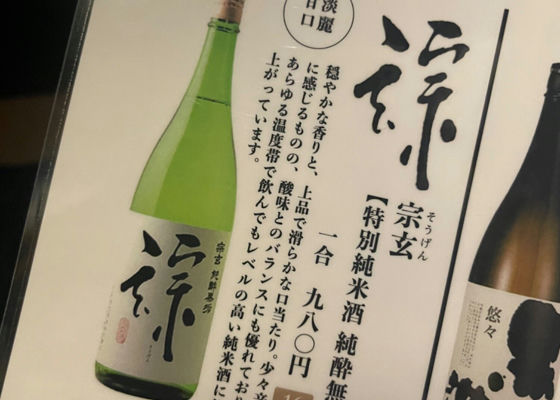 宗玄
そうげん
【特別純米酒 純酔無
一合 九八〇円
淡麗
甘口
穏やかな香りと、上品で滑らかな口当たり。少々辛
に感じるものの、酸味とのバランスにも優れてお
あらゆる温度帯で飲んでもレベルの高い純米酒に
上がっています。
宗玄
悠々